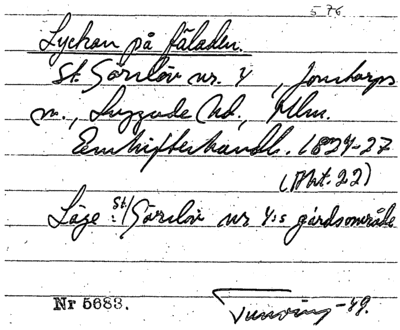 576
Lyckan på fäladen.
St. Görslöv nr. 4, Jonstorps
sn., Luggude hd, Mlm.
Enskifteshandl. 1824-27
(Akt. 22)
Läge: St. Görslöv nr 4:s gårdsområde
Nr 5683.
-49.